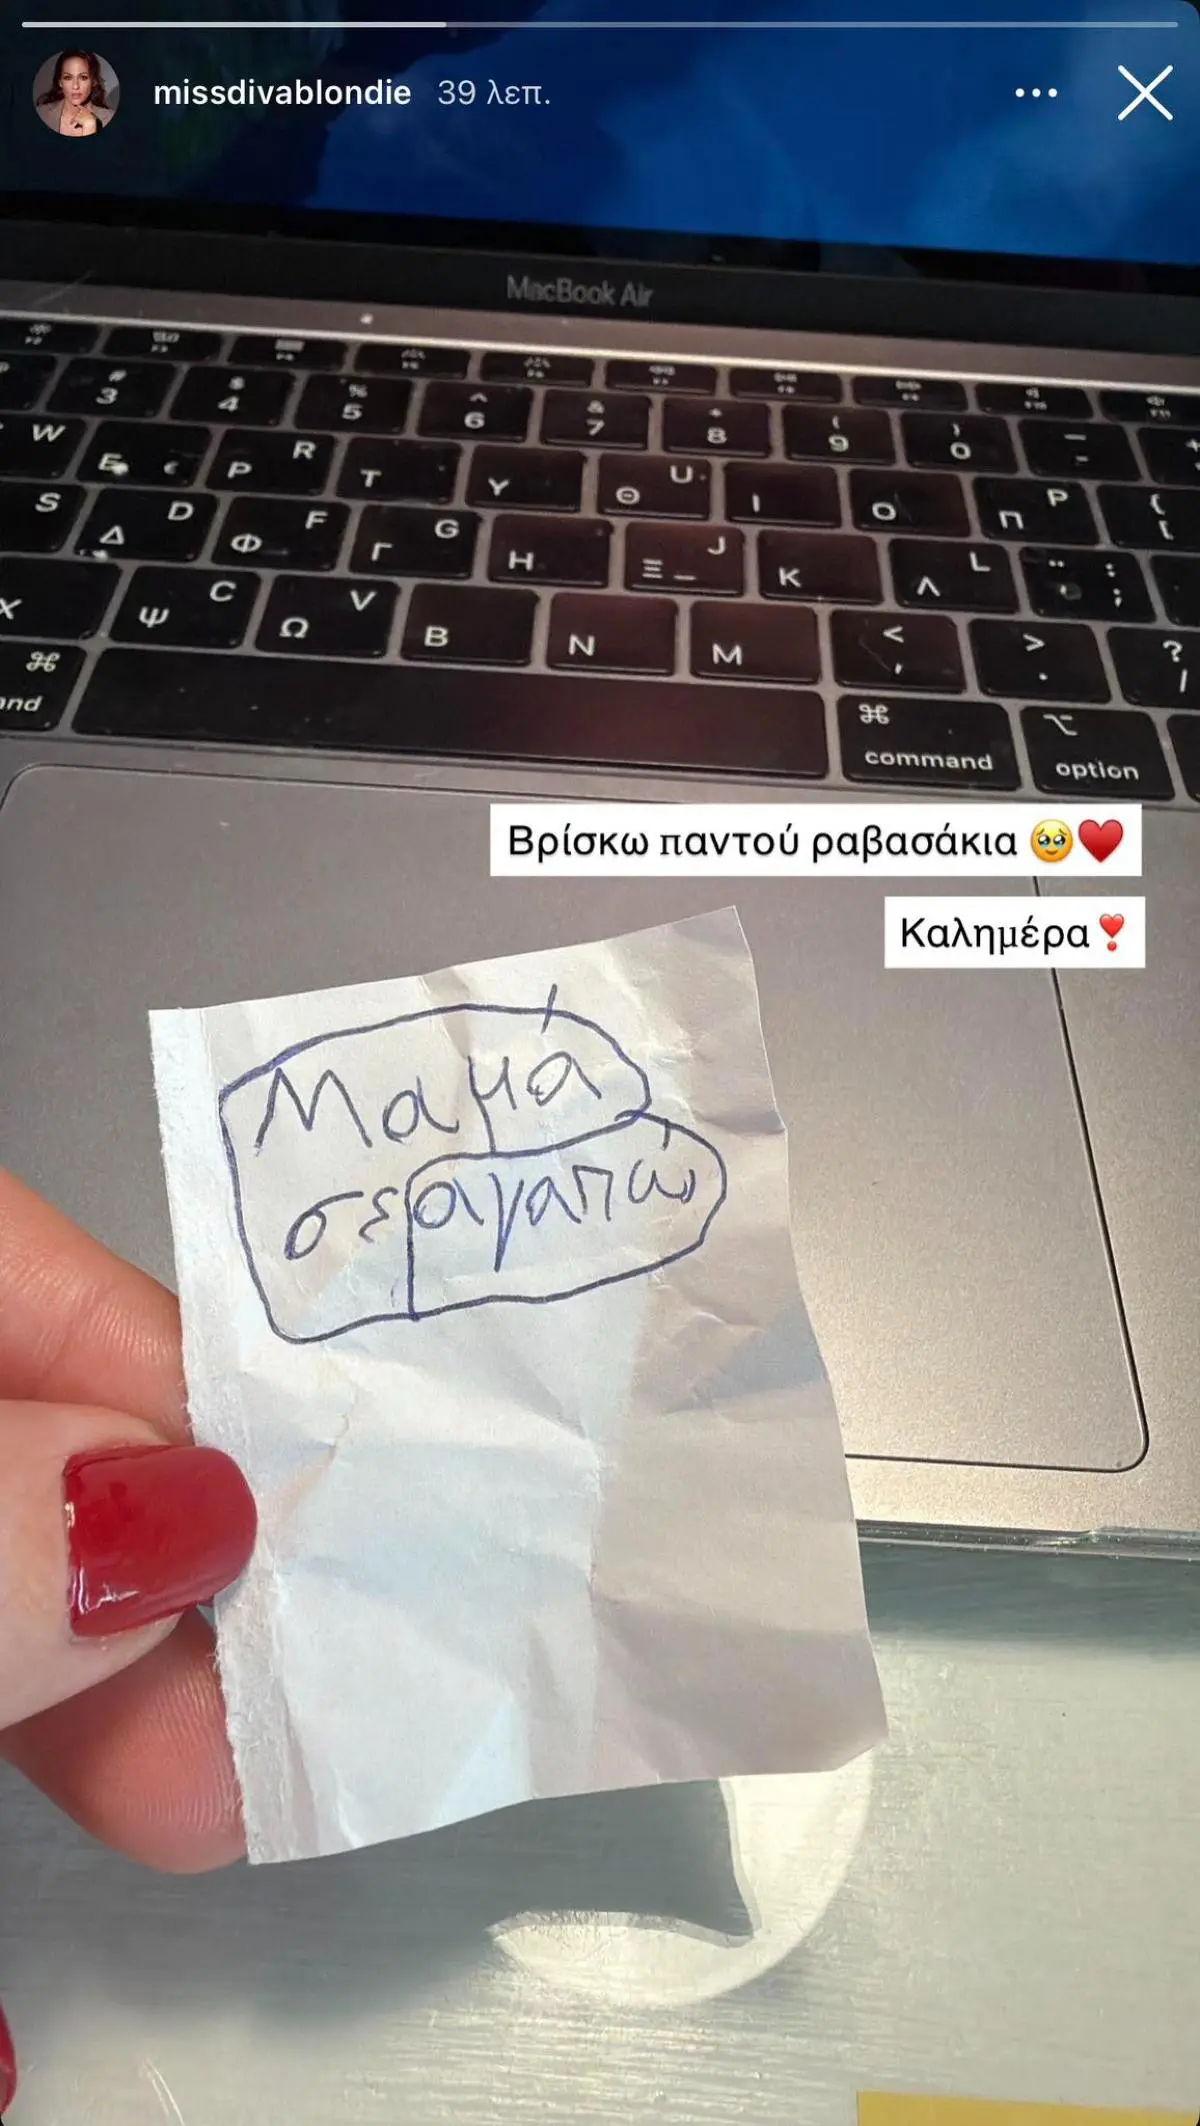 missdivablondie 39 λεπ.
MacBook Air
# $ % ^ & * ( )
3 4 5 6 7 8 9 0
W E € R P T Y U Θ I O P Π { [
S D Δ F Φ G Γ H J Ξ K L Λ : ;
X C Ψ V Ω B N M < , > . ? /
⌘ ⌘ ⌥
command option
Βρίσκω παντού ραβασάκια 🥹♥️
Καλημέρα❣️
Μαμά
σε αγαπώ